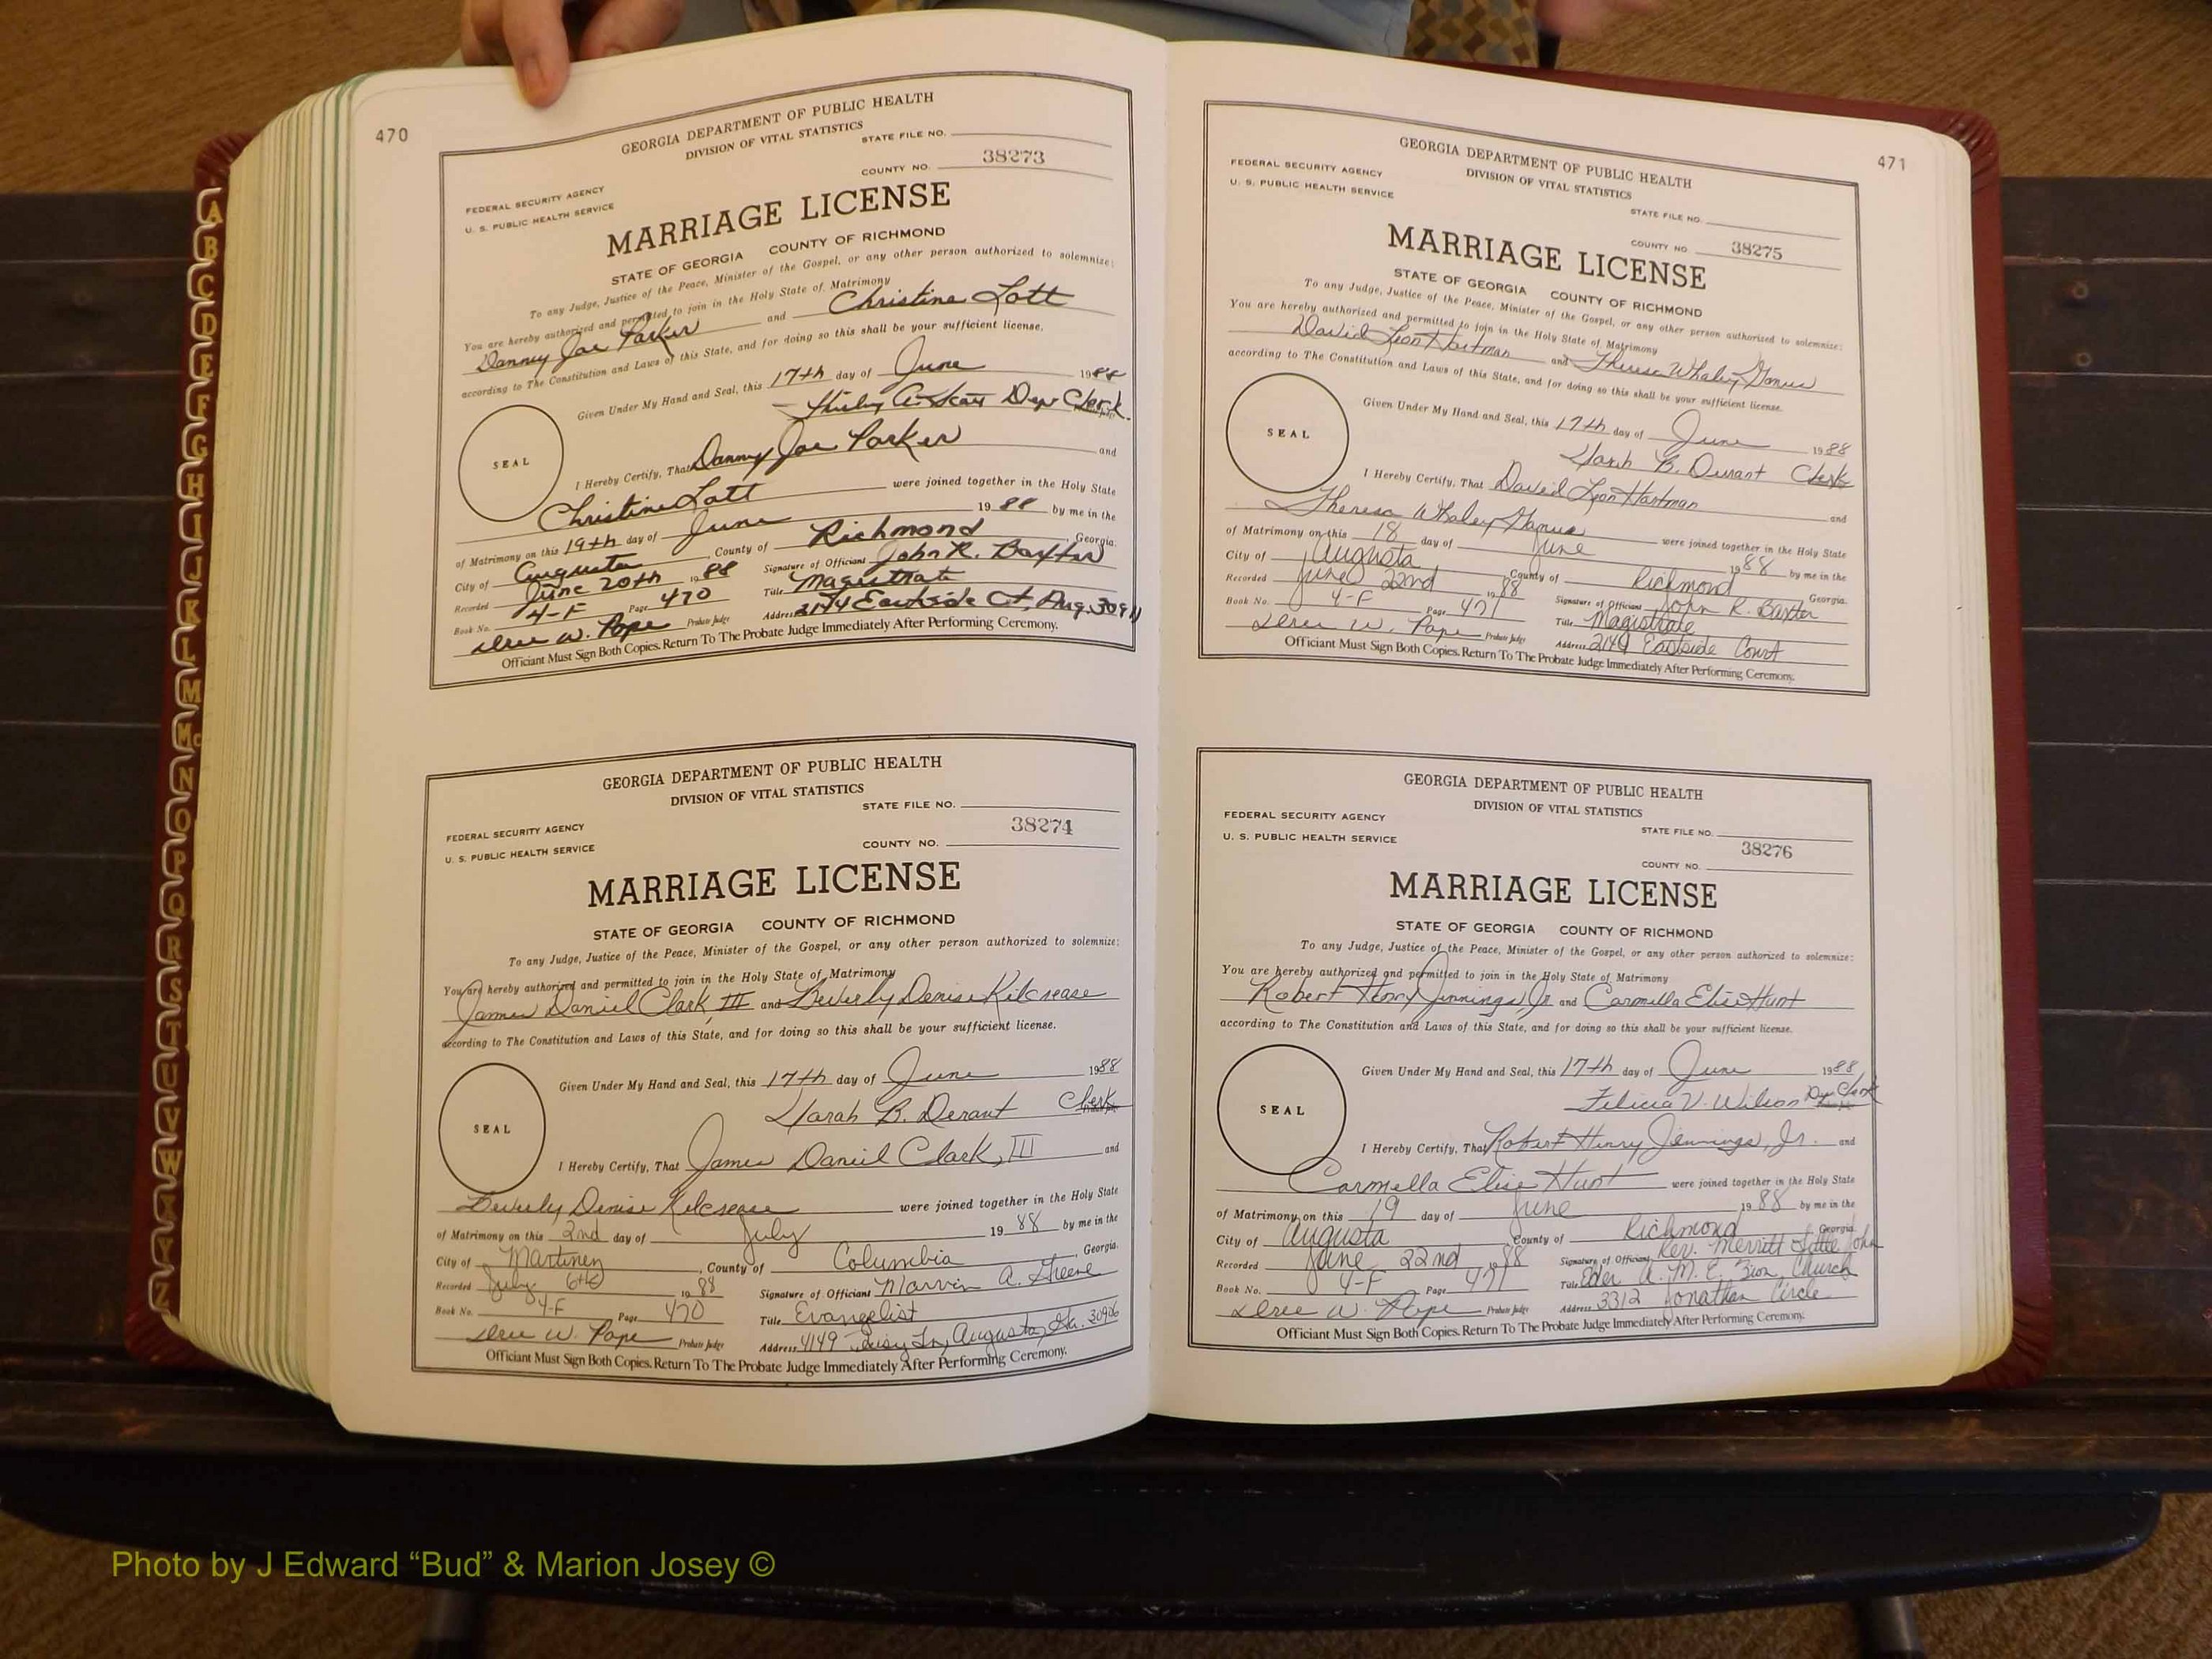 470
GEORGIA DEPARTMENT OF PUBLIC HEALTH
DIVISION OF VITAL STATISTICS
STATE FILE NO.
COUNTY NO. 38273
FEDERAL SECURITY AGENCY
U. S. PUBLIC HEALTH SERVICE
MARRIAGE LICENSE
STATE OF GEORGIA COUNTY OF RICHMOND
To any Judge, Justice of the Peace, Minister of the Gospel, or any other person authorized to solemnize:
You are hereby authorized and permitted to join in the Holy State of Matrimony
Danny Joe Parker and Christine Lott
according to The Constitution and Laws of this State, and for doing so this shall be your sufficient license.
Given Under My Hand and Seal, this 17th day of June 1988
Shirley A. Scott Dep Clerk
SEAL
I Hereby Certify, That Danny Joe Parker and
Christine Lott were joined together in the Holy State
of Matrimony on this 19th day of June 1988 by me in the
City of Augusta, County of Richmond, Georgia.
Recorded June 20th 1988 Signature of Officiant John R. Baxter
Book No. 4-F Page 470 Title Magistrate
Dree W. Pope Probate Judge Address Eastside Ct, Aug.
Officiant Must Sign Both Copies. Return To The Probate Judge Immediately After Performing Ceremony.
GEORGIA DEPARTMENT OF PUBLIC HEALTH
DIVISION OF VITAL STATISTICS
STATE FILE NO.
38274
FEDERAL SECURITY AGENCY
U. S. PUBLIC HEALTH SERVICE
COUNTY NO.
MARRIAGE LICENSE
STATE OF GEORGIA COUNTY OF RICHMOND
To any Judge, Justice of the Peace, Minister of the Gospel, or any other person authorized to solemnize:
You are hereby authorized and permitted to join in the Holy State of Matrimony
James Daniel Clark, III and Beverly Denise Kilcrease
according to The Constitution and Laws of this State, and for doing so this shall be your sufficient license.
Given Under My Hand and Seal, this 17th day of June 1988
Sarah B. Durant Clerk
SEAL
I Hereby Certify, That James Daniel Clark, III and
Beverly Denise Kilcrease were joined together in the Holy State
of Matrimony on this 2nd day of July 1988 by me in the
City of Martinez, County of Columbia, Georgia.
Recorded July 6th 1988 Signature of Officiant Marvin A. Greene
Book No. 4-F Page 470 Title Evangelist
Dree W. Pope Probate Judge Address 4149 Ln, Augusta, Ga. 30906
Officiant Must Sign Both Copies. Return To The Probate Judge Immediately After Performing Ceremony.
471
GEORGIA DEPARTMENT OF PUBLIC HEALTH
DIVISION OF VITAL STATISTICS
FEDERAL SECURITY AGENCY
U. S. PUBLIC HEALTH SERVICE
STATE FILE NO.
COUNTY NO. 38275
MARRIAGE LICENSE
STATE OF GEORGIA COUNTY OF RICHMOND
To any Judge, Justice of the Peace, Minister of the Gospel, or any other person authorized to solemnize:
You are hereby authorized and permitted to join in the Holy State of Matrimony
David Leon Hartman and Theresa Whaley Ganus
according to The Constitution and Laws of this State, and for doing so this shall be your sufficient license.
Given Under My Hand and Seal, this 17th day of June 1988
Sarah B. Durant Clerk
SEAL
I Hereby Certify, That David Leon Hartman and
Theresa Whaley Ganus were joined together in the Holy State
of Matrimony on this 18 day of June 1988 by me in the
City of Augusta County of Richmond Georgia.
Recorded June 22nd 1988 Signature of Officiant John R. Baxter
Book No. 4-F Page 471 Title Magistrate
Dree W. Pope Probate Judge Address Eastside Court
Officiant Must Sign Both Copies. Return To The Probate Judge Immediately After Performing Ceremony.
GEORGIA DEPARTMENT OF PUBLIC HEALTH
DIVISION OF VITAL STATISTICS
FEDERAL SECURITY AGENCY
U. S. PUBLIC HEALTH SERVICE
STATE FILE NO.
38276
COUNTY NO.
MARRIAGE LICENSE
STATE OF GEORGIA COUNTY OF RICHMOND
To any Judge, Justice of the Peace, Minister of the Gospel, or any other person authorized to solemnize:
You are hereby authorized and permitted to join in the Holy State of Matrimony
Robert Henry Jennings, Jr. and Carmella Elise Hunt
according to The Constitution and Laws of this State, and for doing so this shall be your sufficient license.
Given Under My Hand and Seal, this 17th day of June 1988
Felicia V. Wilson Dep Clerk
SEAL
I Hereby Certify, That Robert Henry Jennings, Jr. and
Carmella Elise Hunt were joined together in the Holy State
of Matrimony on this 19 day of June 1988 by me in the
City of Augusta, County of Richmond Georgia.
Recorded June 22nd 1988 Signature of Officiant Rev. Merritt Little John
Book No. 4-F Page 471 Title Elder A. M. E. Zion Church
Dree W. Pope Probate Judge Address 3312 Jonathan Circle
Officiant Must Sign Both Copies. Return To The Probate Judge Immediately After Performing Ceremony.
A
B
C
D
E
F
G
H
I
J
K
L
M
Mc
N
O
P
Q
R
S
T
U
V
W
X
Y
Z
Photo by J Edward “Bud” & Marion Josey ©